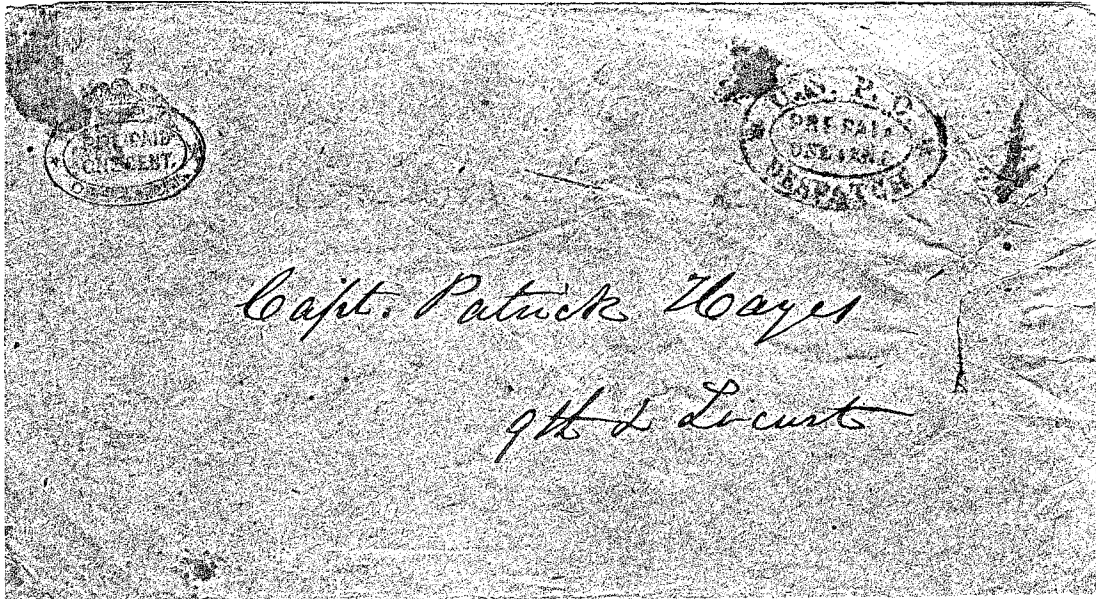 PRE-PAID
ONE CENT.
U.S. P. O.
PRE-PAID
ONE CENT
DESPATCH
Capt. Patrick Hayes
9th & Locust